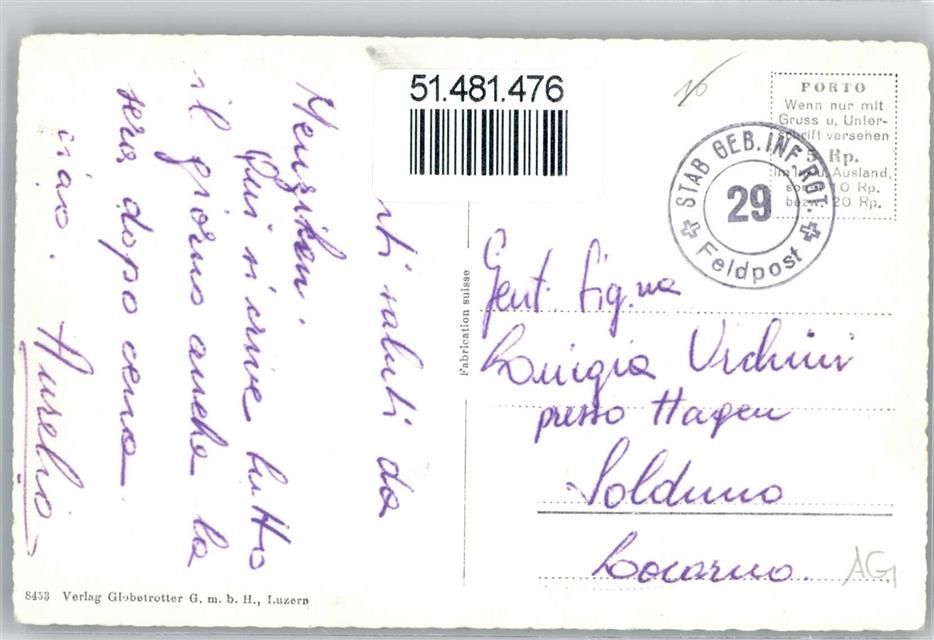 51.481.476
nti saluti da
Menziken.
Qui si scrive tutto
il giorno anche la
sera dopo cena
ciao. Aurelio
16
PORTO
Wenn nur mit
Gruss u. Unter-
schrift versehen
5 Rp.
Ausland,
10 Rp.
bezw. 20 Rp.
STAB GEB. INF. RGT.
29
Feldpost
Fabrication suisse
Gent. Sig.na
Luigia
presso Hagen
Solduno
Locarno.
AG
8453 Verlag Globetrotter G. m. b. H., Luzern